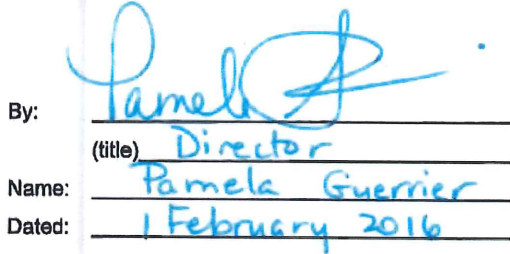 By: Pamela
(title) Director
Name: Pamela Guerrier
Dated: 1 February 2016